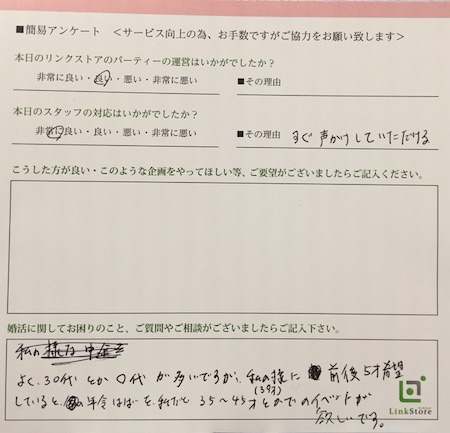 ■簡易アンケート <サービス向上の為、お手数ですがご協力をお願い致します>
本日のリンクストアのパーティーの運営はいかがでしたか?
非常に良い・良い・悪い・非常に悪い ■その理由
本日のスタッフの対応はいかがでしたか?
非常に良い・良い・悪い・非常に悪い ■その理由 すぐ声かけしていただける
こうした方が良い・このような企画をやってほしい等、ご要望がございましたらご記入ください。
婚活に関してお困りのこと、ご質問やご相談がございましたらご記入下さい。
私の様な
よく、30代とか〇代が多いですが、私の様に 前後5才希望
(39才)
していると、年令はばを、私だと35〜45才とかでのイベントが
欲しいです。
LinkStore